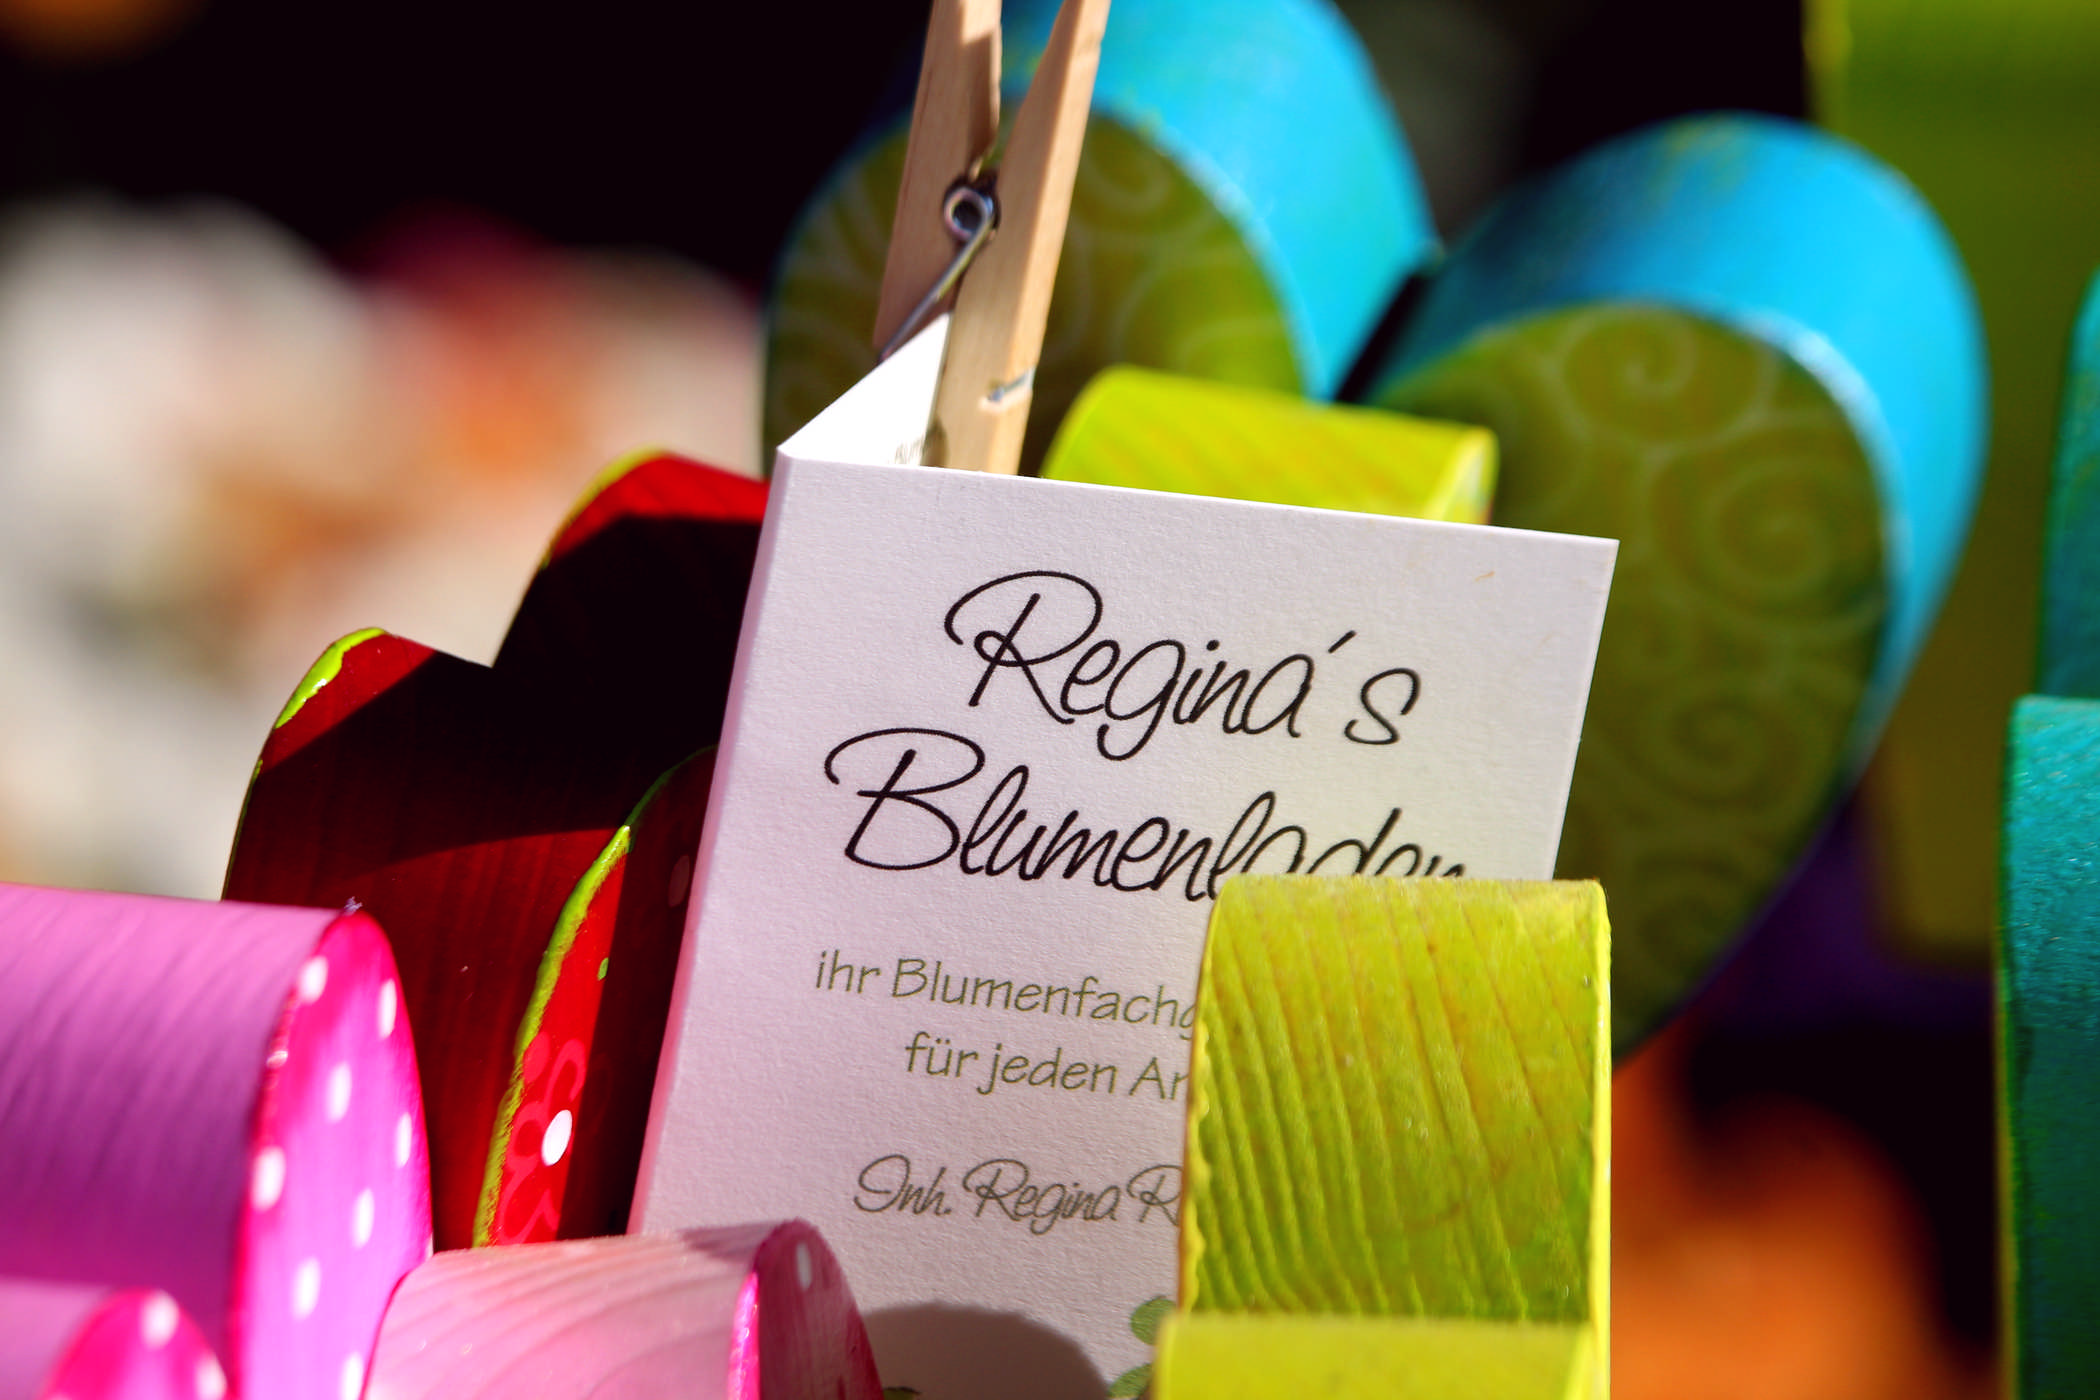 Regina´s
Blumenladen
ihr Blumenfachg
für jeden An
Inh. Regina R